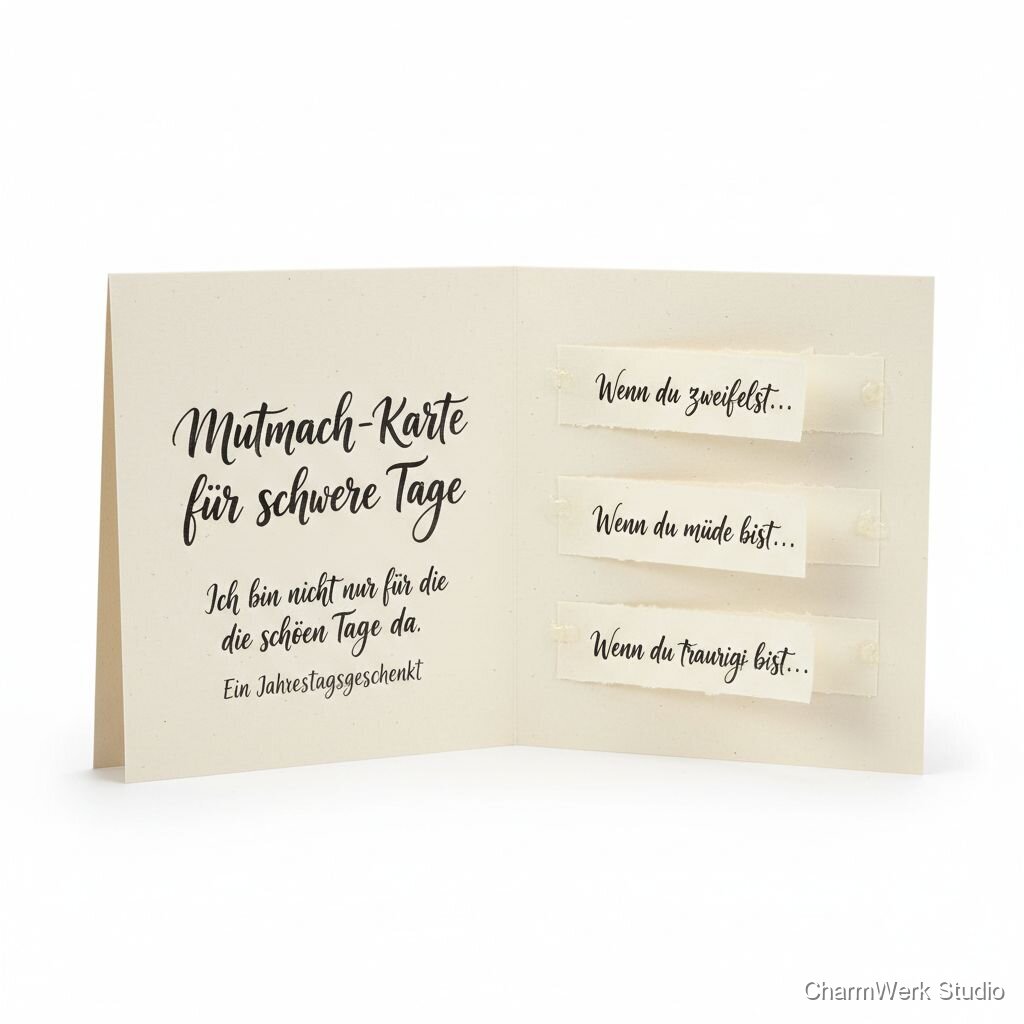 Mutmach-Karte
für schwere Tage
Ich bin nicht nur für die
die schöen Tage da.
Ein Jahrestagsgeschenkt
Wenn du zweifelst...
Wenn du müde bist...
Wenn du traurigj bist...
CharmWerk Studio